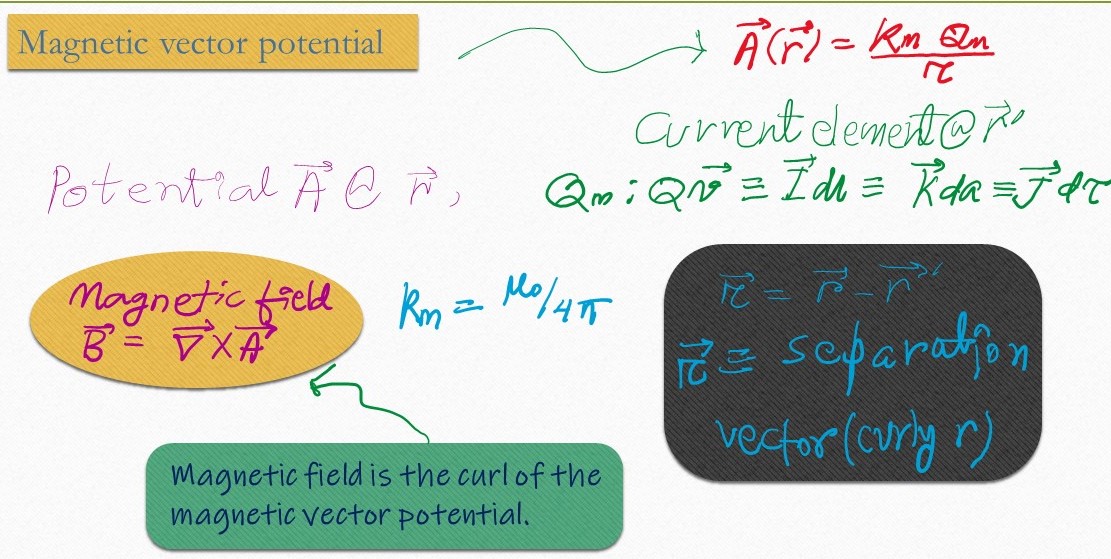 Magnetic vector potential
A⃗(r⃗) = km Qm / 𝓇
Current element @ r⃗'
Potential A⃗ @ r⃗,
Qm : Qv⃗ ≡ I⃗dl ≡ K⃗da ≡ J⃗dτ
Magnetic field
B⃗ = ∇⃗ X A⃗
km = μ0/4π
𝓇⃗ = r⃗ - r⃗'
𝓇⃗ ≡ separation
vector (curly r)
Magnetic field is the curl of the
magnetic vector potential.